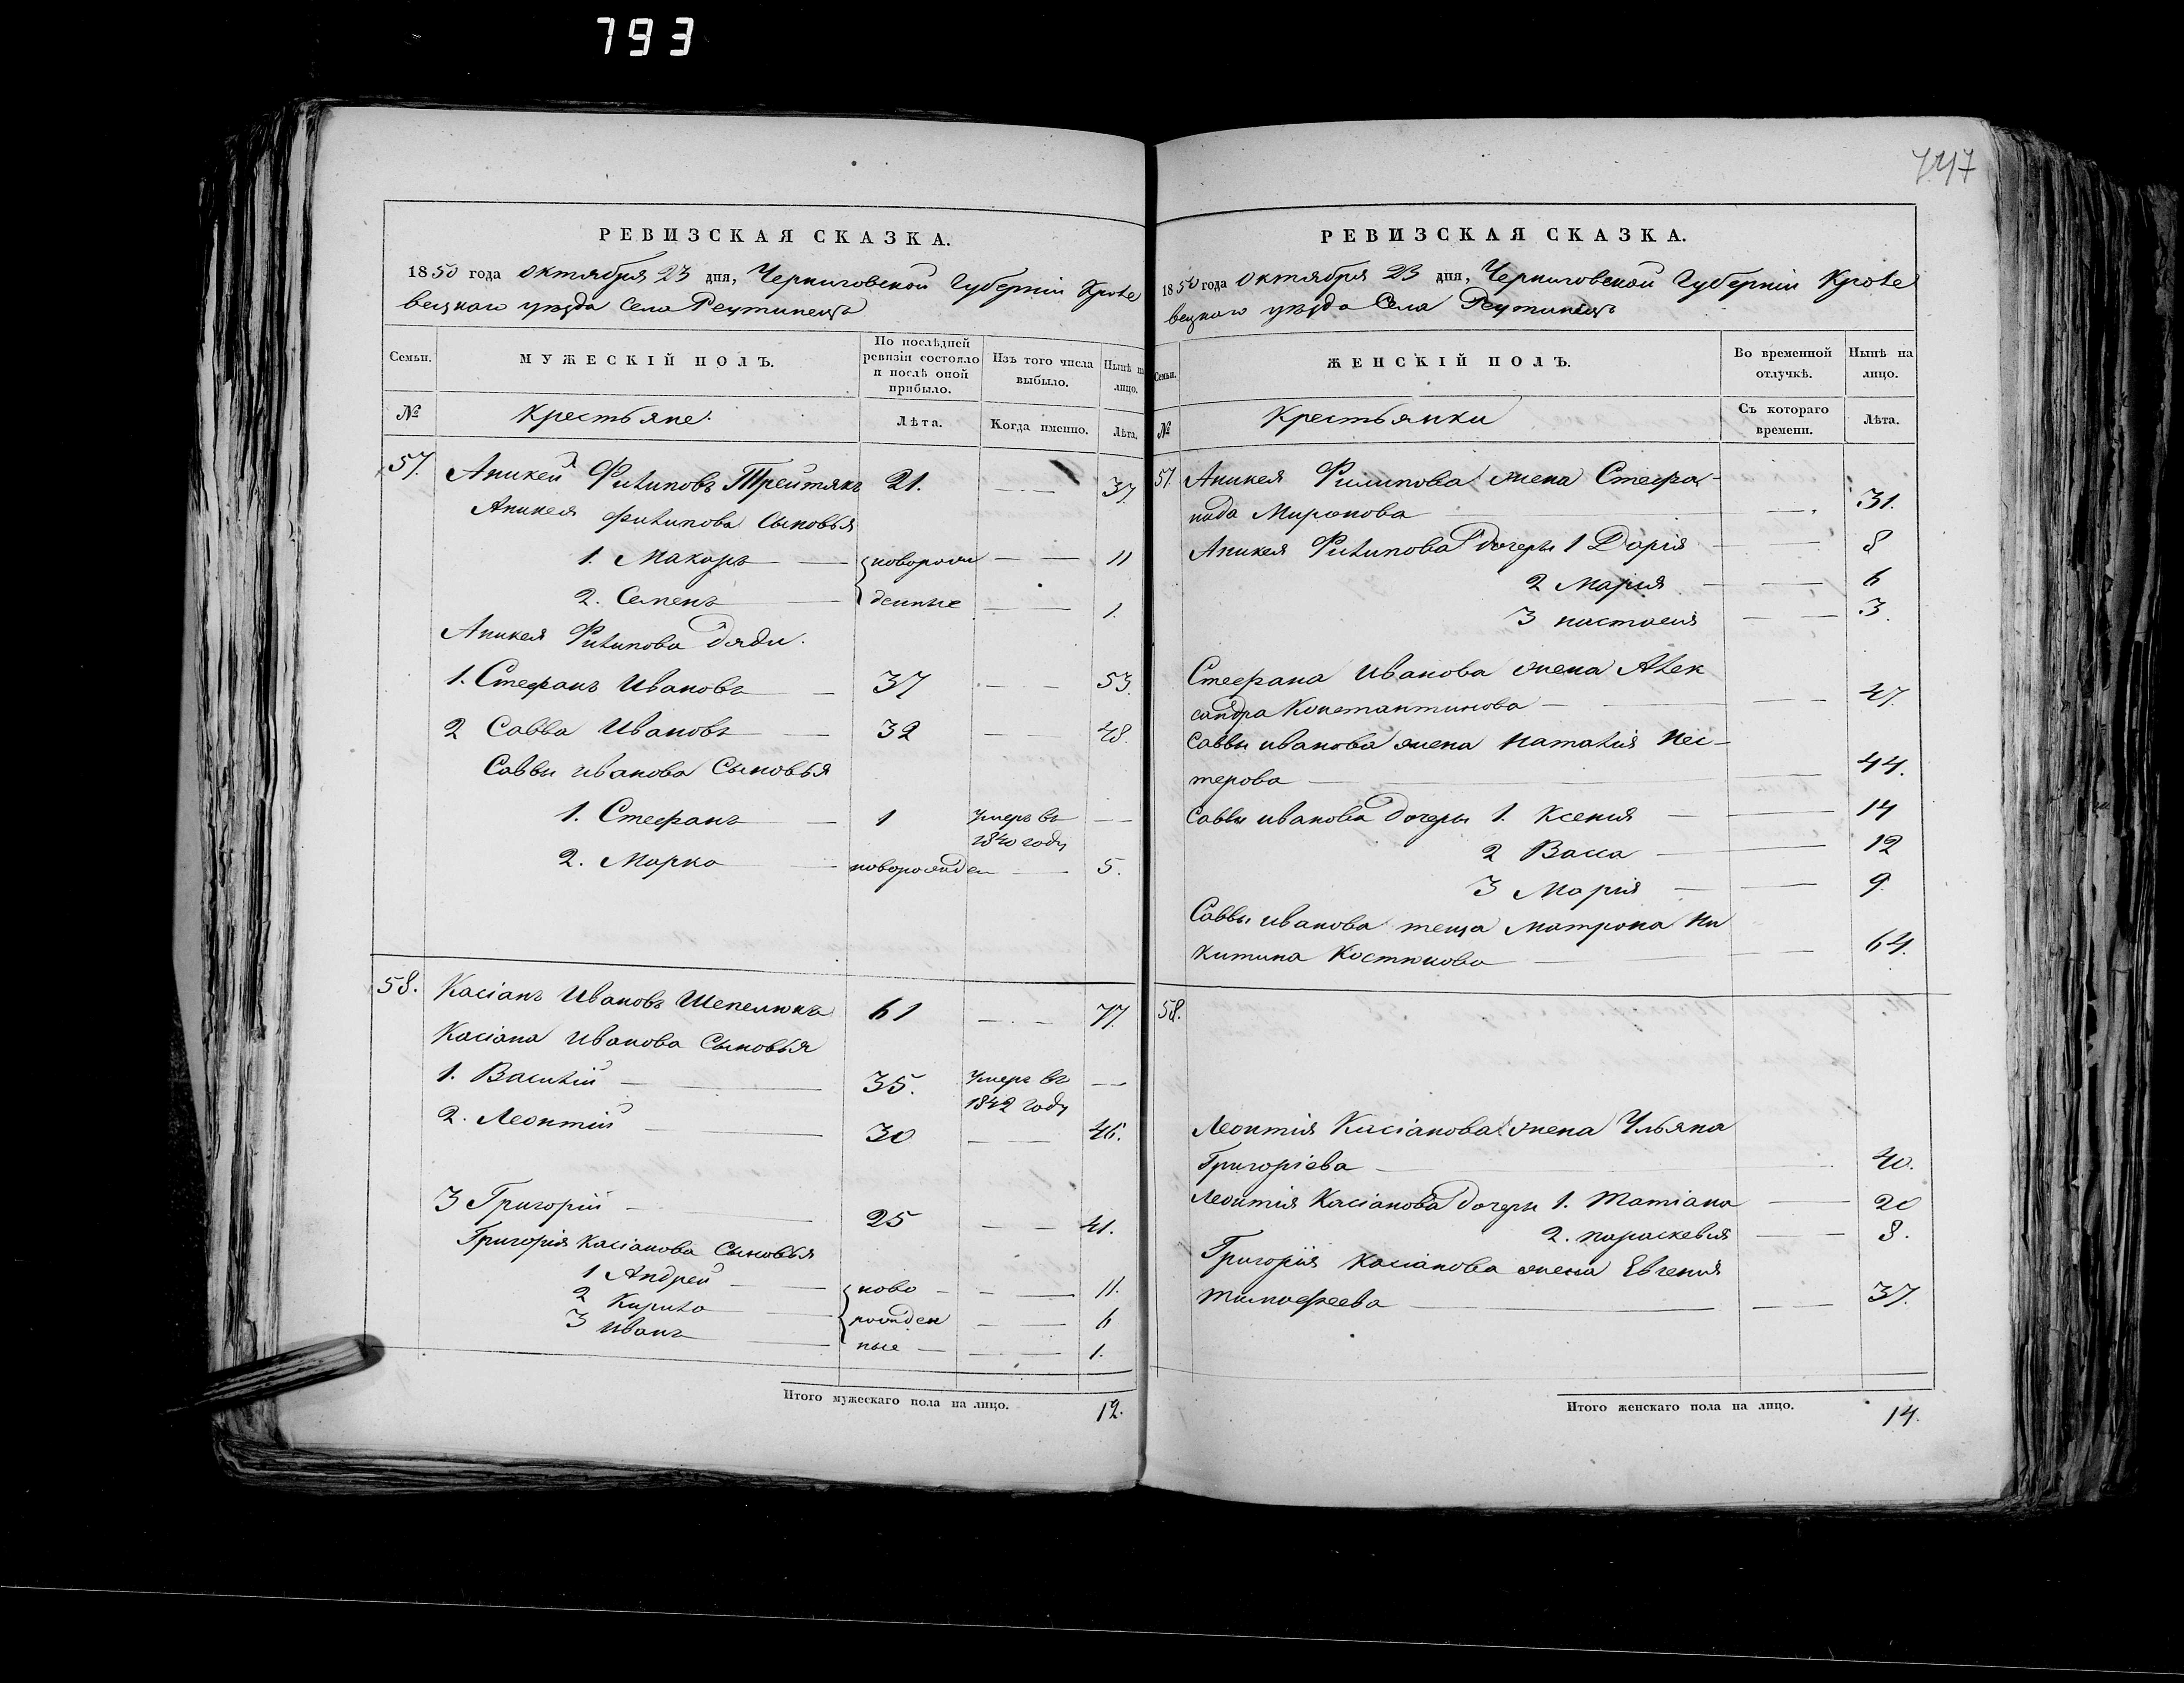 793
747
РЕВИЗСКАЯ СКАЗКА.
1850 года Октября 23 дня, Черниговской Губерніи Кроле
вецкаго уѣзда Села Реутинецъ
Семьи.
МУЖЕСКІЙ ПОЛЪ.
По послѣдней
ревизіи состояло
и послѣ оной
прибыло.
Изъ того числа
выбыло.
Нынѣ на
лицо.
№
Крестьяне.
Лѣта.
Когда именно.
Лѣта.
57. Аникей Филиповъ Трейтякъ 21. — 37
Аникея Филипова Сыновья
1. Макаръ — новорож — — 11
2. Семенъ — денные — — 1.
Аникея Филипова Дяди.
1. Стефанъ Ивановъ — 37 — — 53.
2 Савва Ивановъ — 32 — — 48.
Саввы Иванова Сыновья
1. Стефанъ — 1 Умеръ въ —
1840 году
2. Марко — новорожден — 5.
58. Касіанъ Ивановъ Шепелюкъ 61 — — 77.
Касіана Иванова Сыновья
1. Василій — 35. Умеръ въ —
1842 году
2. Леонтій — 30 — — 46.
3 Григорій — 25 — — 41.
Григорія Касіанова Сыновья
1 Андрей — ново — — 11.
2 Кирило — рожден — — 6
3 Иванъ — ные — — 1.
Итого мужескаго пола на лицо. 12.
РЕВИЗСКАЯ СКАЗКА.
1850 года Октября 23 дня, Черниговской Губерніи Кроле
вецкаго уѣзда Села Реутинецъ
Семьи.
ЖЕНСКІЙ ПОЛЪ.
Во временной
отлучкѣ.
Нынѣ на
лицо.
№
Крестьянки
Съ котораго
времени.
Лѣта.
57. Аникея Филипова жена Стефа-
нида Миронова — — 31.
Аникея Филипова Дочери 1 Дарія — — 8
2 Марія — — 6
3 Настасия — — 3.
Стефана Иванова жена Алек
сандра Константинова — — 47.
Саввы Иванова жена Наталія Нес-
терова — — 44.
Саввы Иванова Дочери 1. Ксенія — — 14
2 Васса — — 12
3 Марія — — 9
Саввы Иванова теща Матрона Ни
китина Костюкова — — 64.
58.
Леонтія Касіанова жена Ульяна
Григоріева — — 40.
Леонтія Касіанова Дочери 1. Татіана — 20
2. Параскевія — — 8.
Григорія Касіанова жена Евгенія
Тимофеева — — 37.
Итого женскаго пола на лицо. 14.